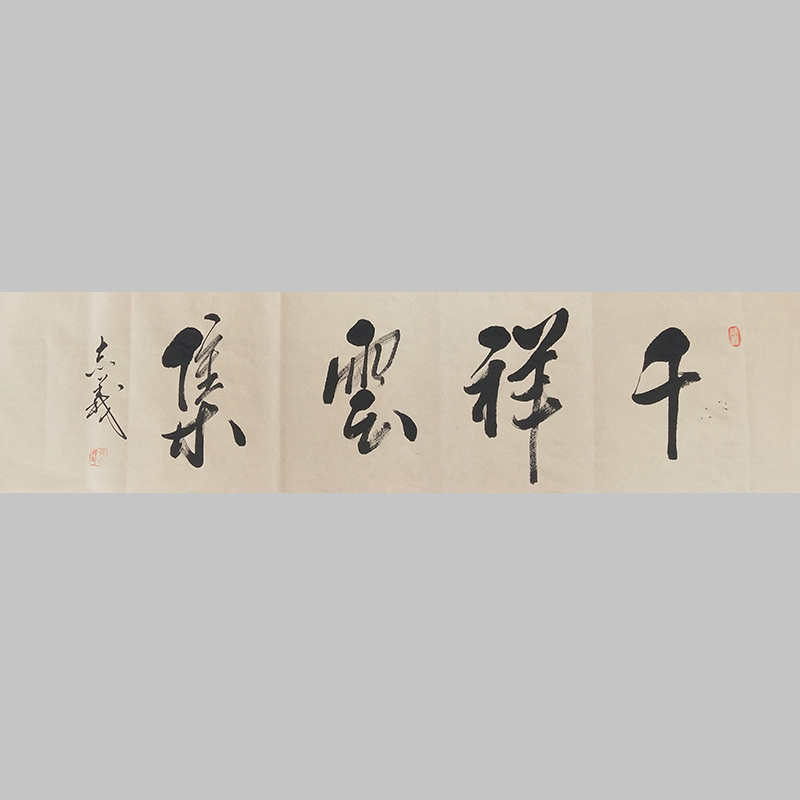 千祥雲集
志義